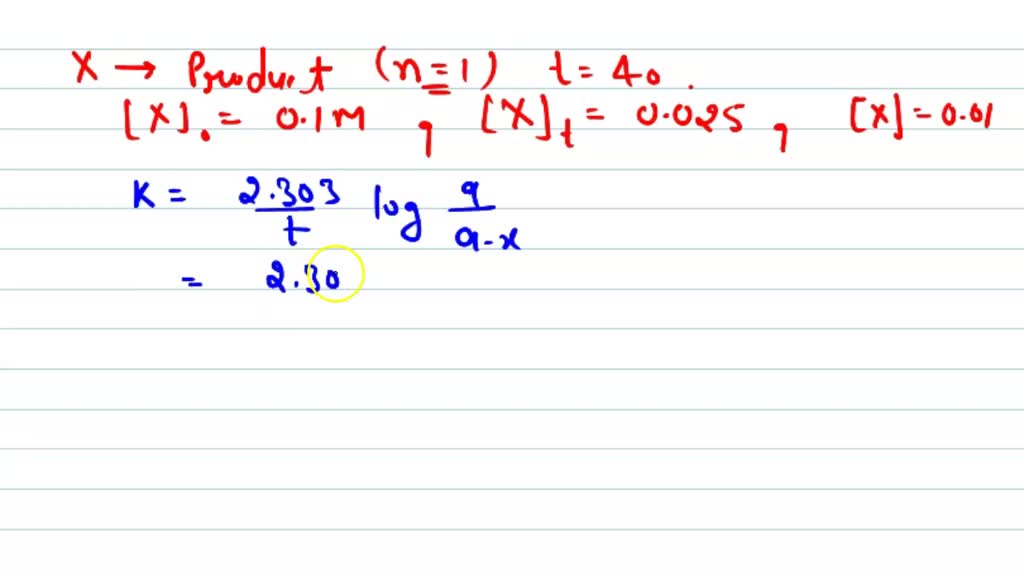 X → Product (n=1) t = 40.
[X]₀ = 0.1M , [X]t = 0.025 , [X] = 0.01
K = 2.303/t log a/a-x
= 2.30